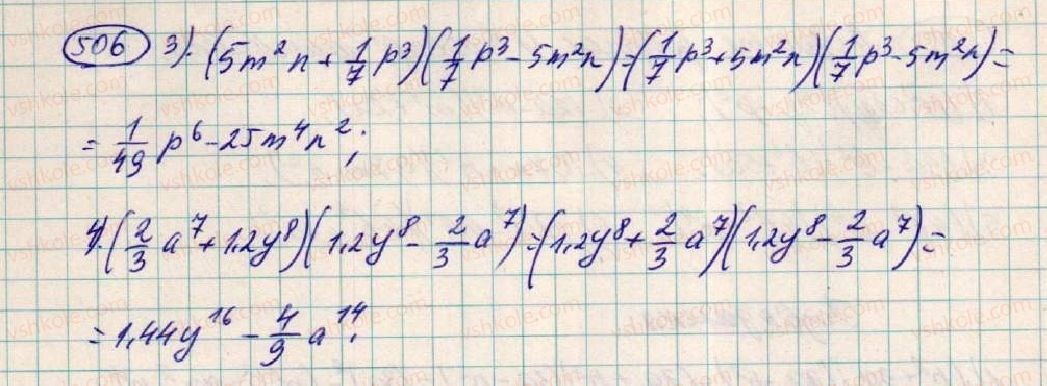 506 3). (5m²n + 1/7 p³)(1/7 p³ - 5m²n) = (1/7 p³ + 5m²n)(1/7 p³ - 5m²n) =
= 1/49 p⁶ - 25m⁴n²;
4). (2/3 a⁷ + 1,2y⁸)(1,2y⁸ - 2/3 a⁷) = (1,2y⁸ + 2/3 a⁷)(1,2y⁸ - 2/3 a⁷) =
= 1,44y¹⁶ - 4/9 a¹⁴.